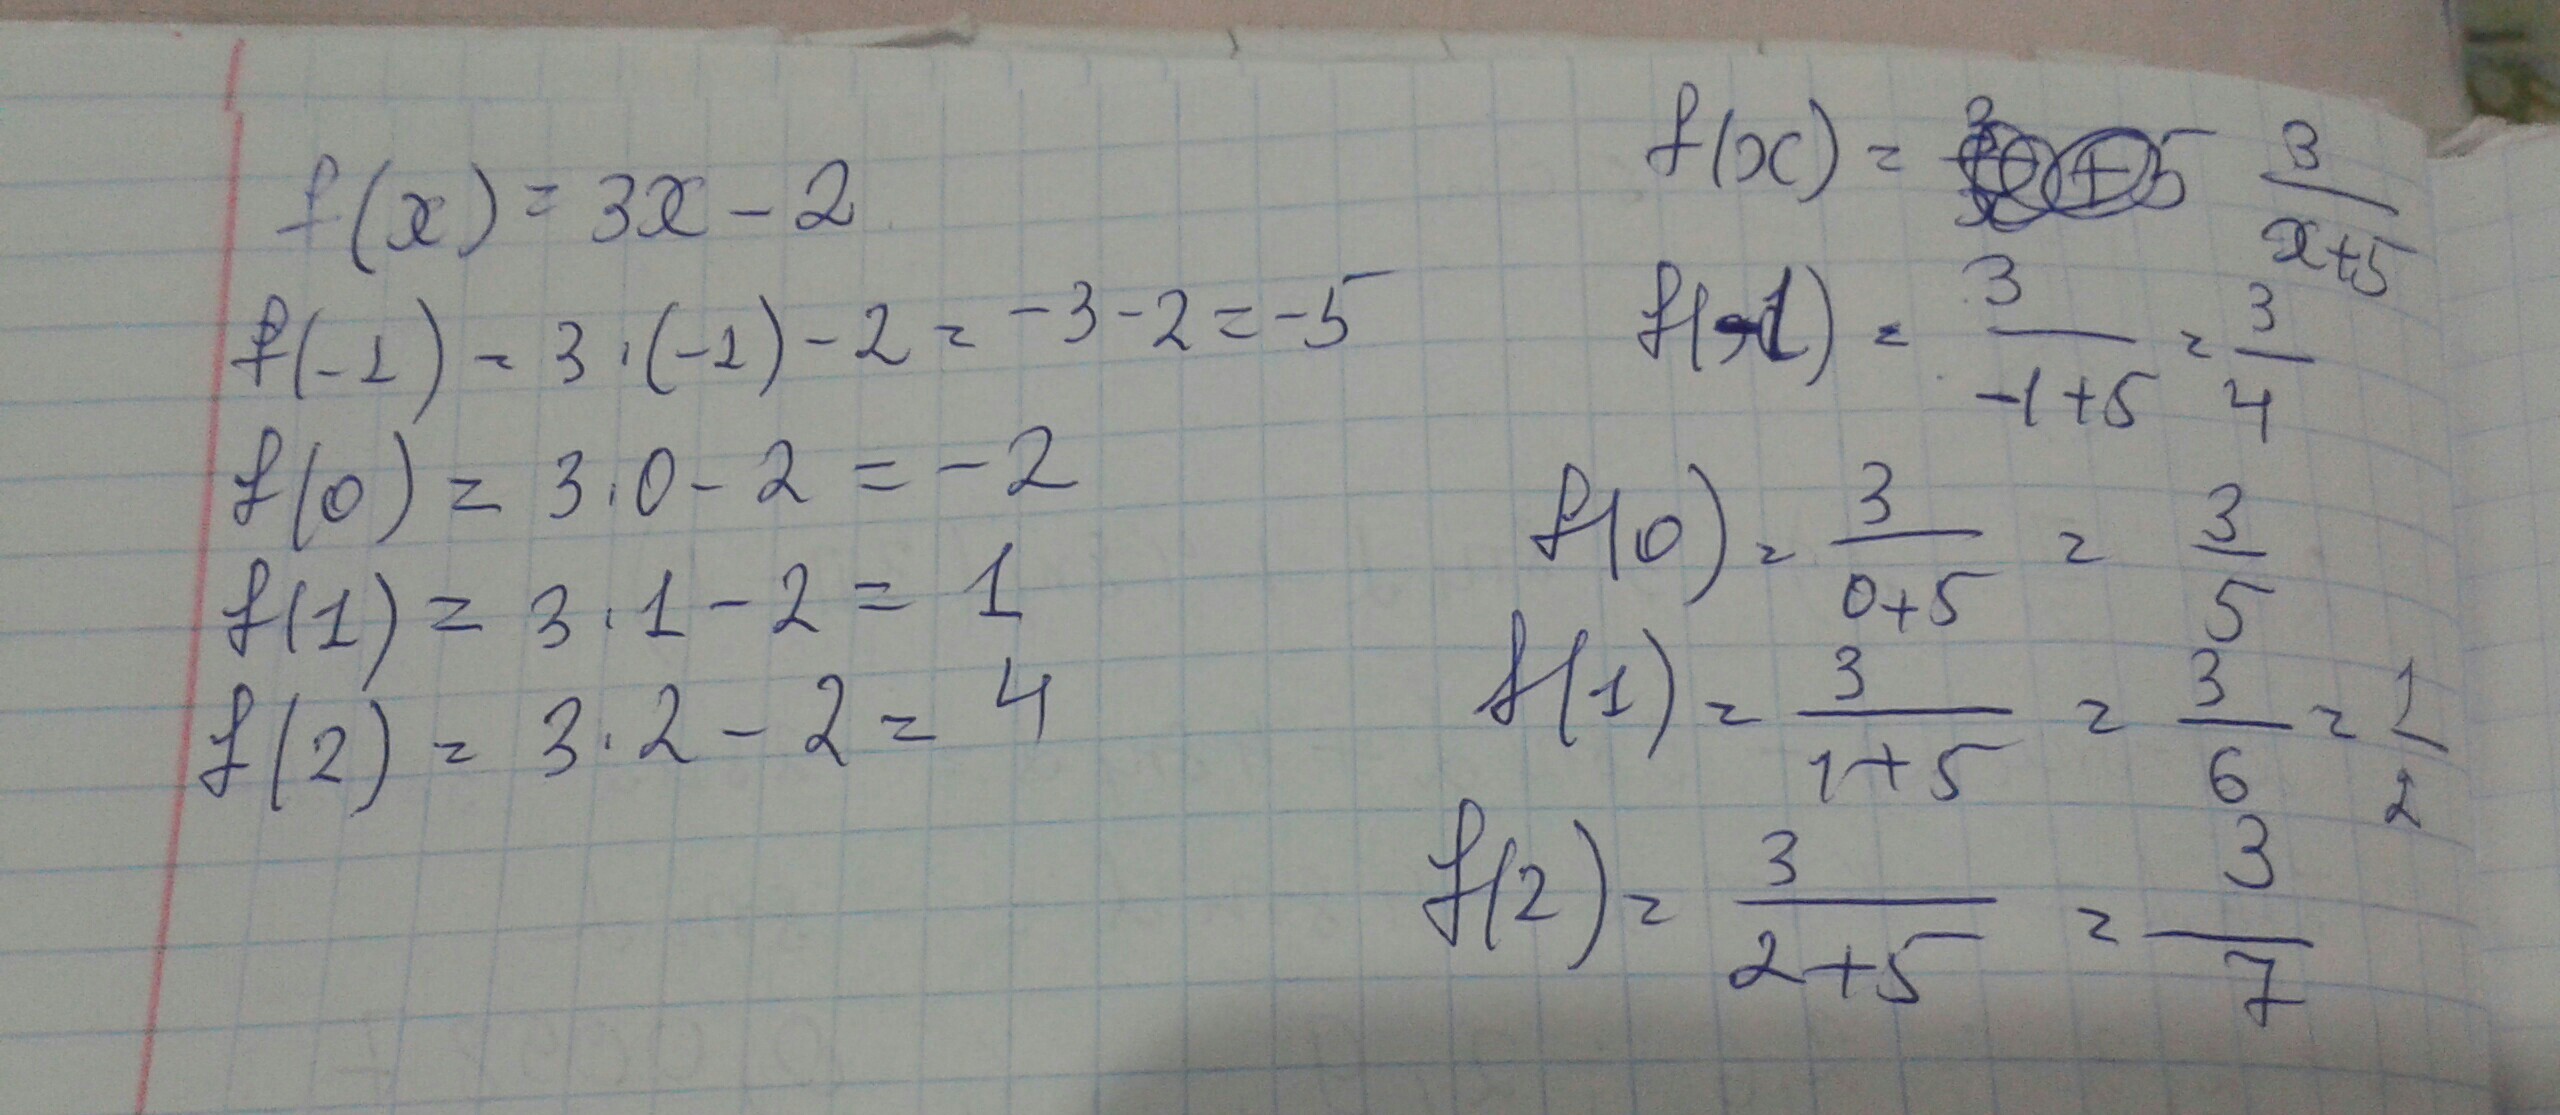 f(x) = 3x - 2
f(-1) = 3·(-1) - 2 = -3 - 2 = -5
f(0) = 3·0 - 2 = -2
f(1) = 3·1 - 2 = 1
f(2) = 3·2 - 2 = 4
f(x) = 3/(x+5)
f(-1) = 3/(-1+5) = 3/4
f(0) = 3/(0+5) = 3/5
f(1) = 3/(1+5) = 3/6 = 1/2
f(2) = 3/(2+5) = 3/7